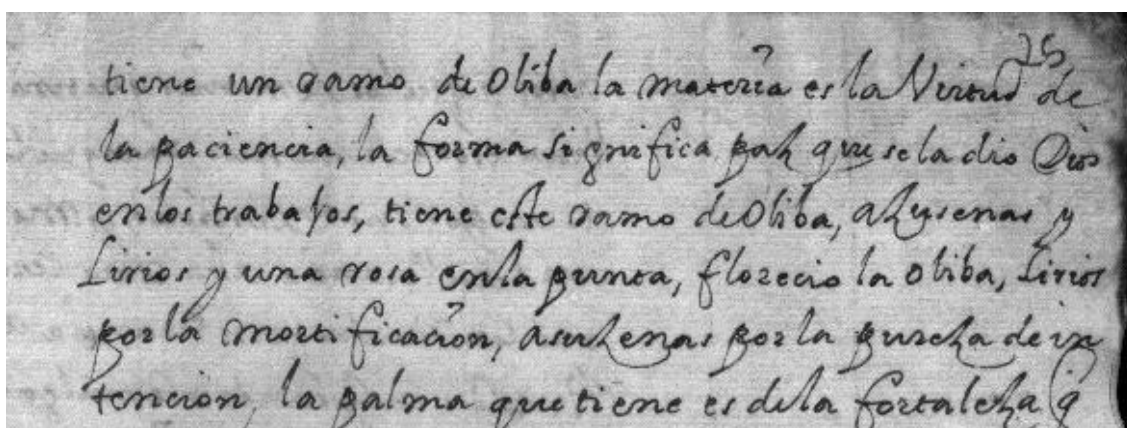 25
tiene un ramo de Oliba la materia es la Virtud de
la paciencia, la forma significa paz que se la dio Dios
en los trabajos, tiene este ramo de Oliba, azusenas y
Lirios y una rosa en la punta, florecio la Oliba, Lirios
por la mortificacion, asuzenas por la pureza de in
tencion, la palma que tiene es de la fortaleza q